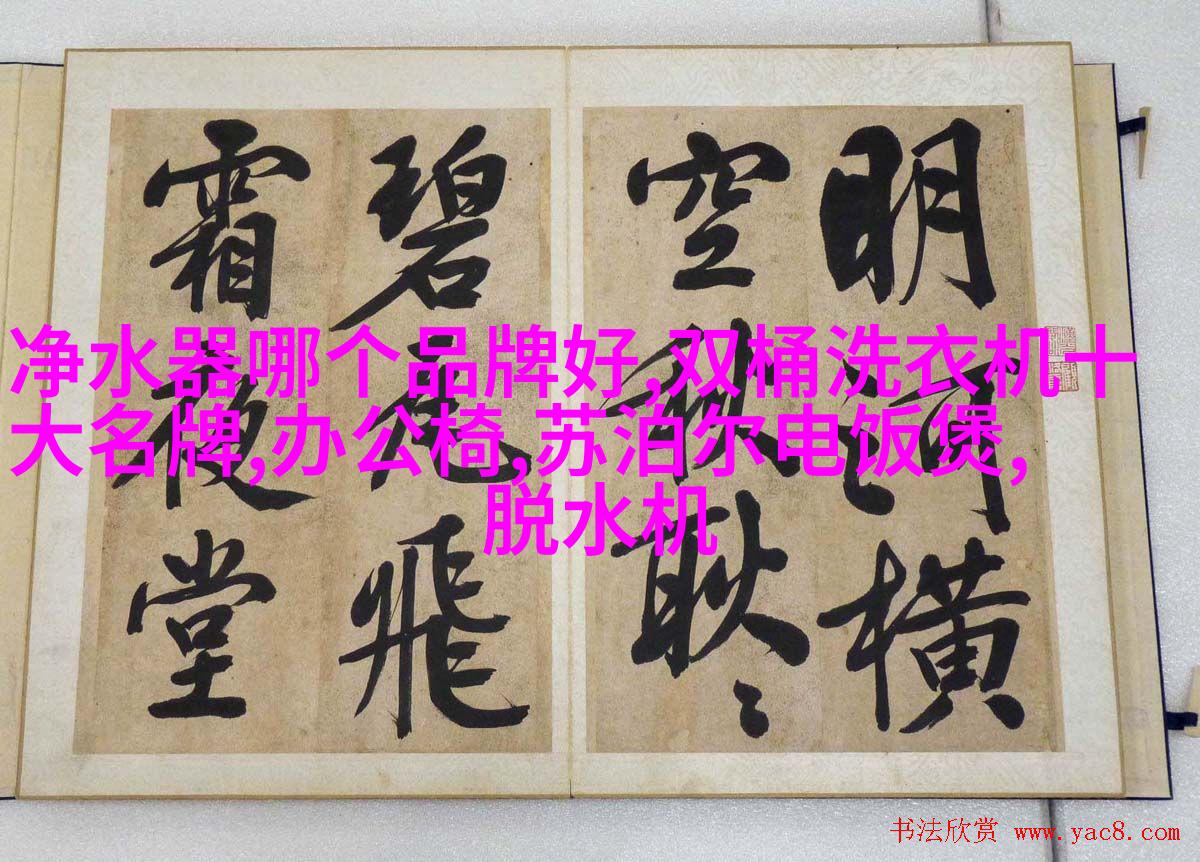 明河橫
空秋耿〻
碧瓦飛
霜夜堂
净水器哪个品牌好,双桶洗衣机十
大名牌,办公椅,苏泊尔电饭煲,
脱水机
书法欣赏 www.yac8.com